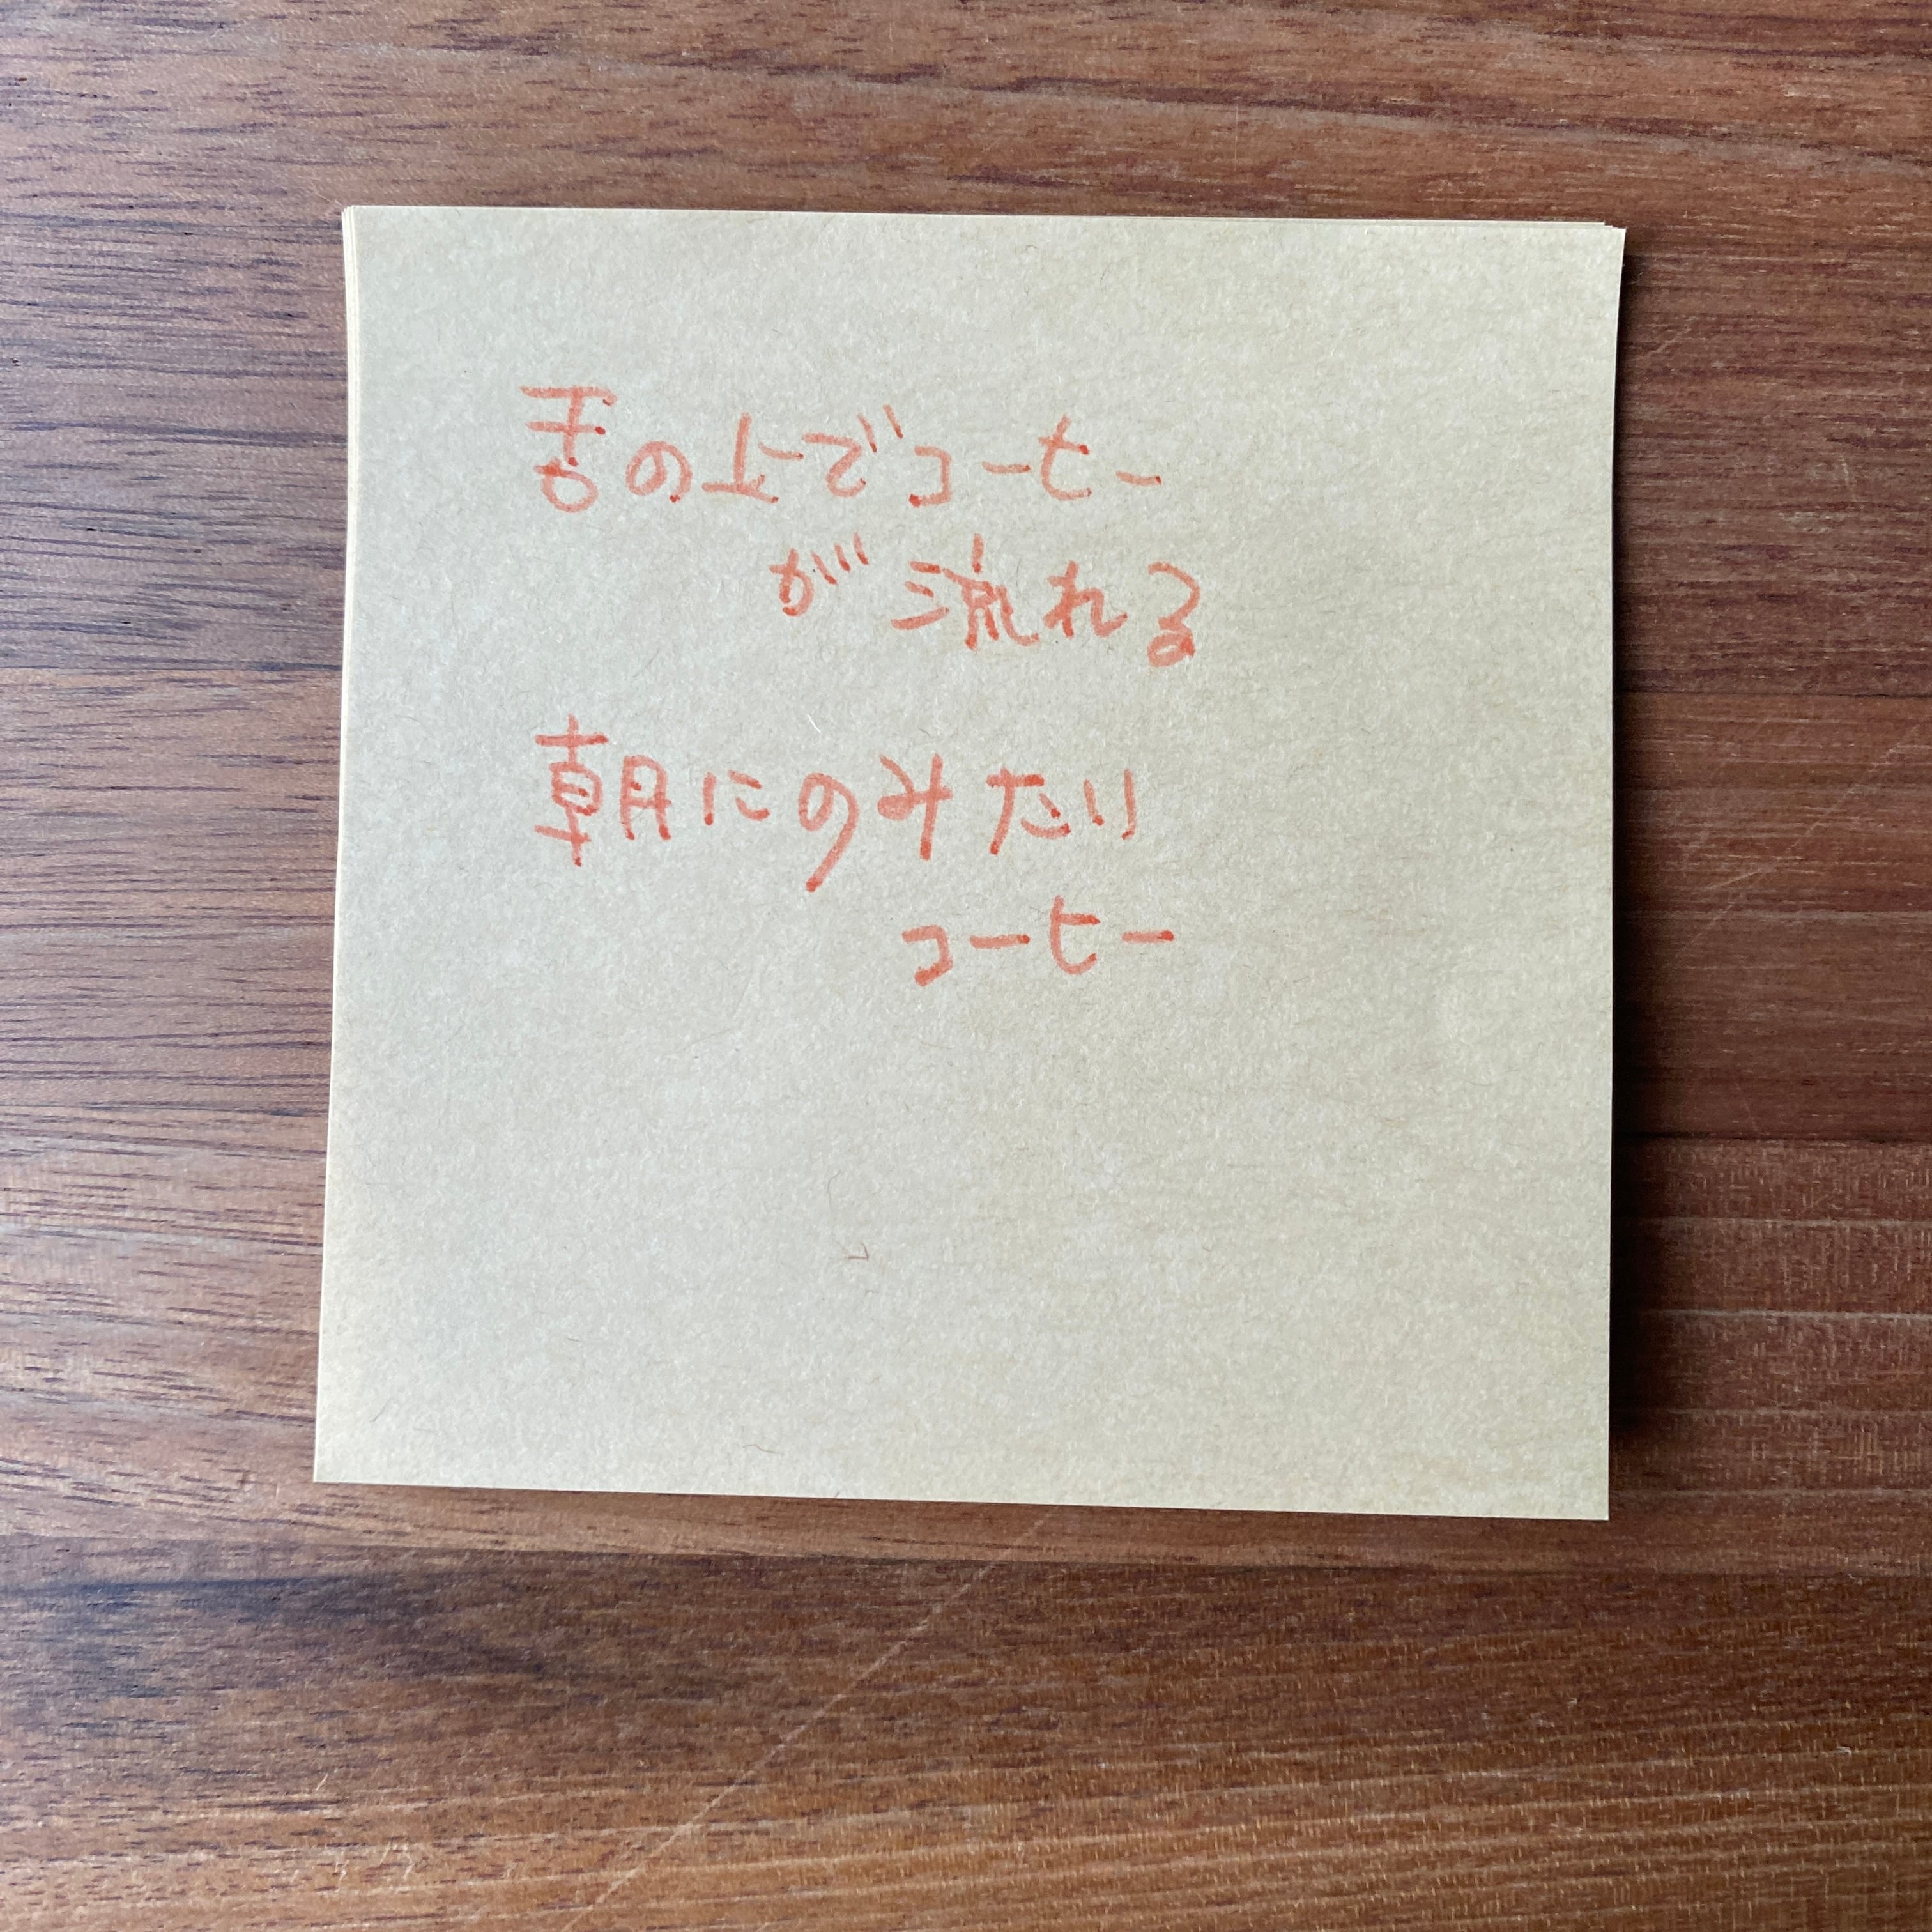 舌の上でコーヒー
が流れる
朝にのみたい
コーヒー